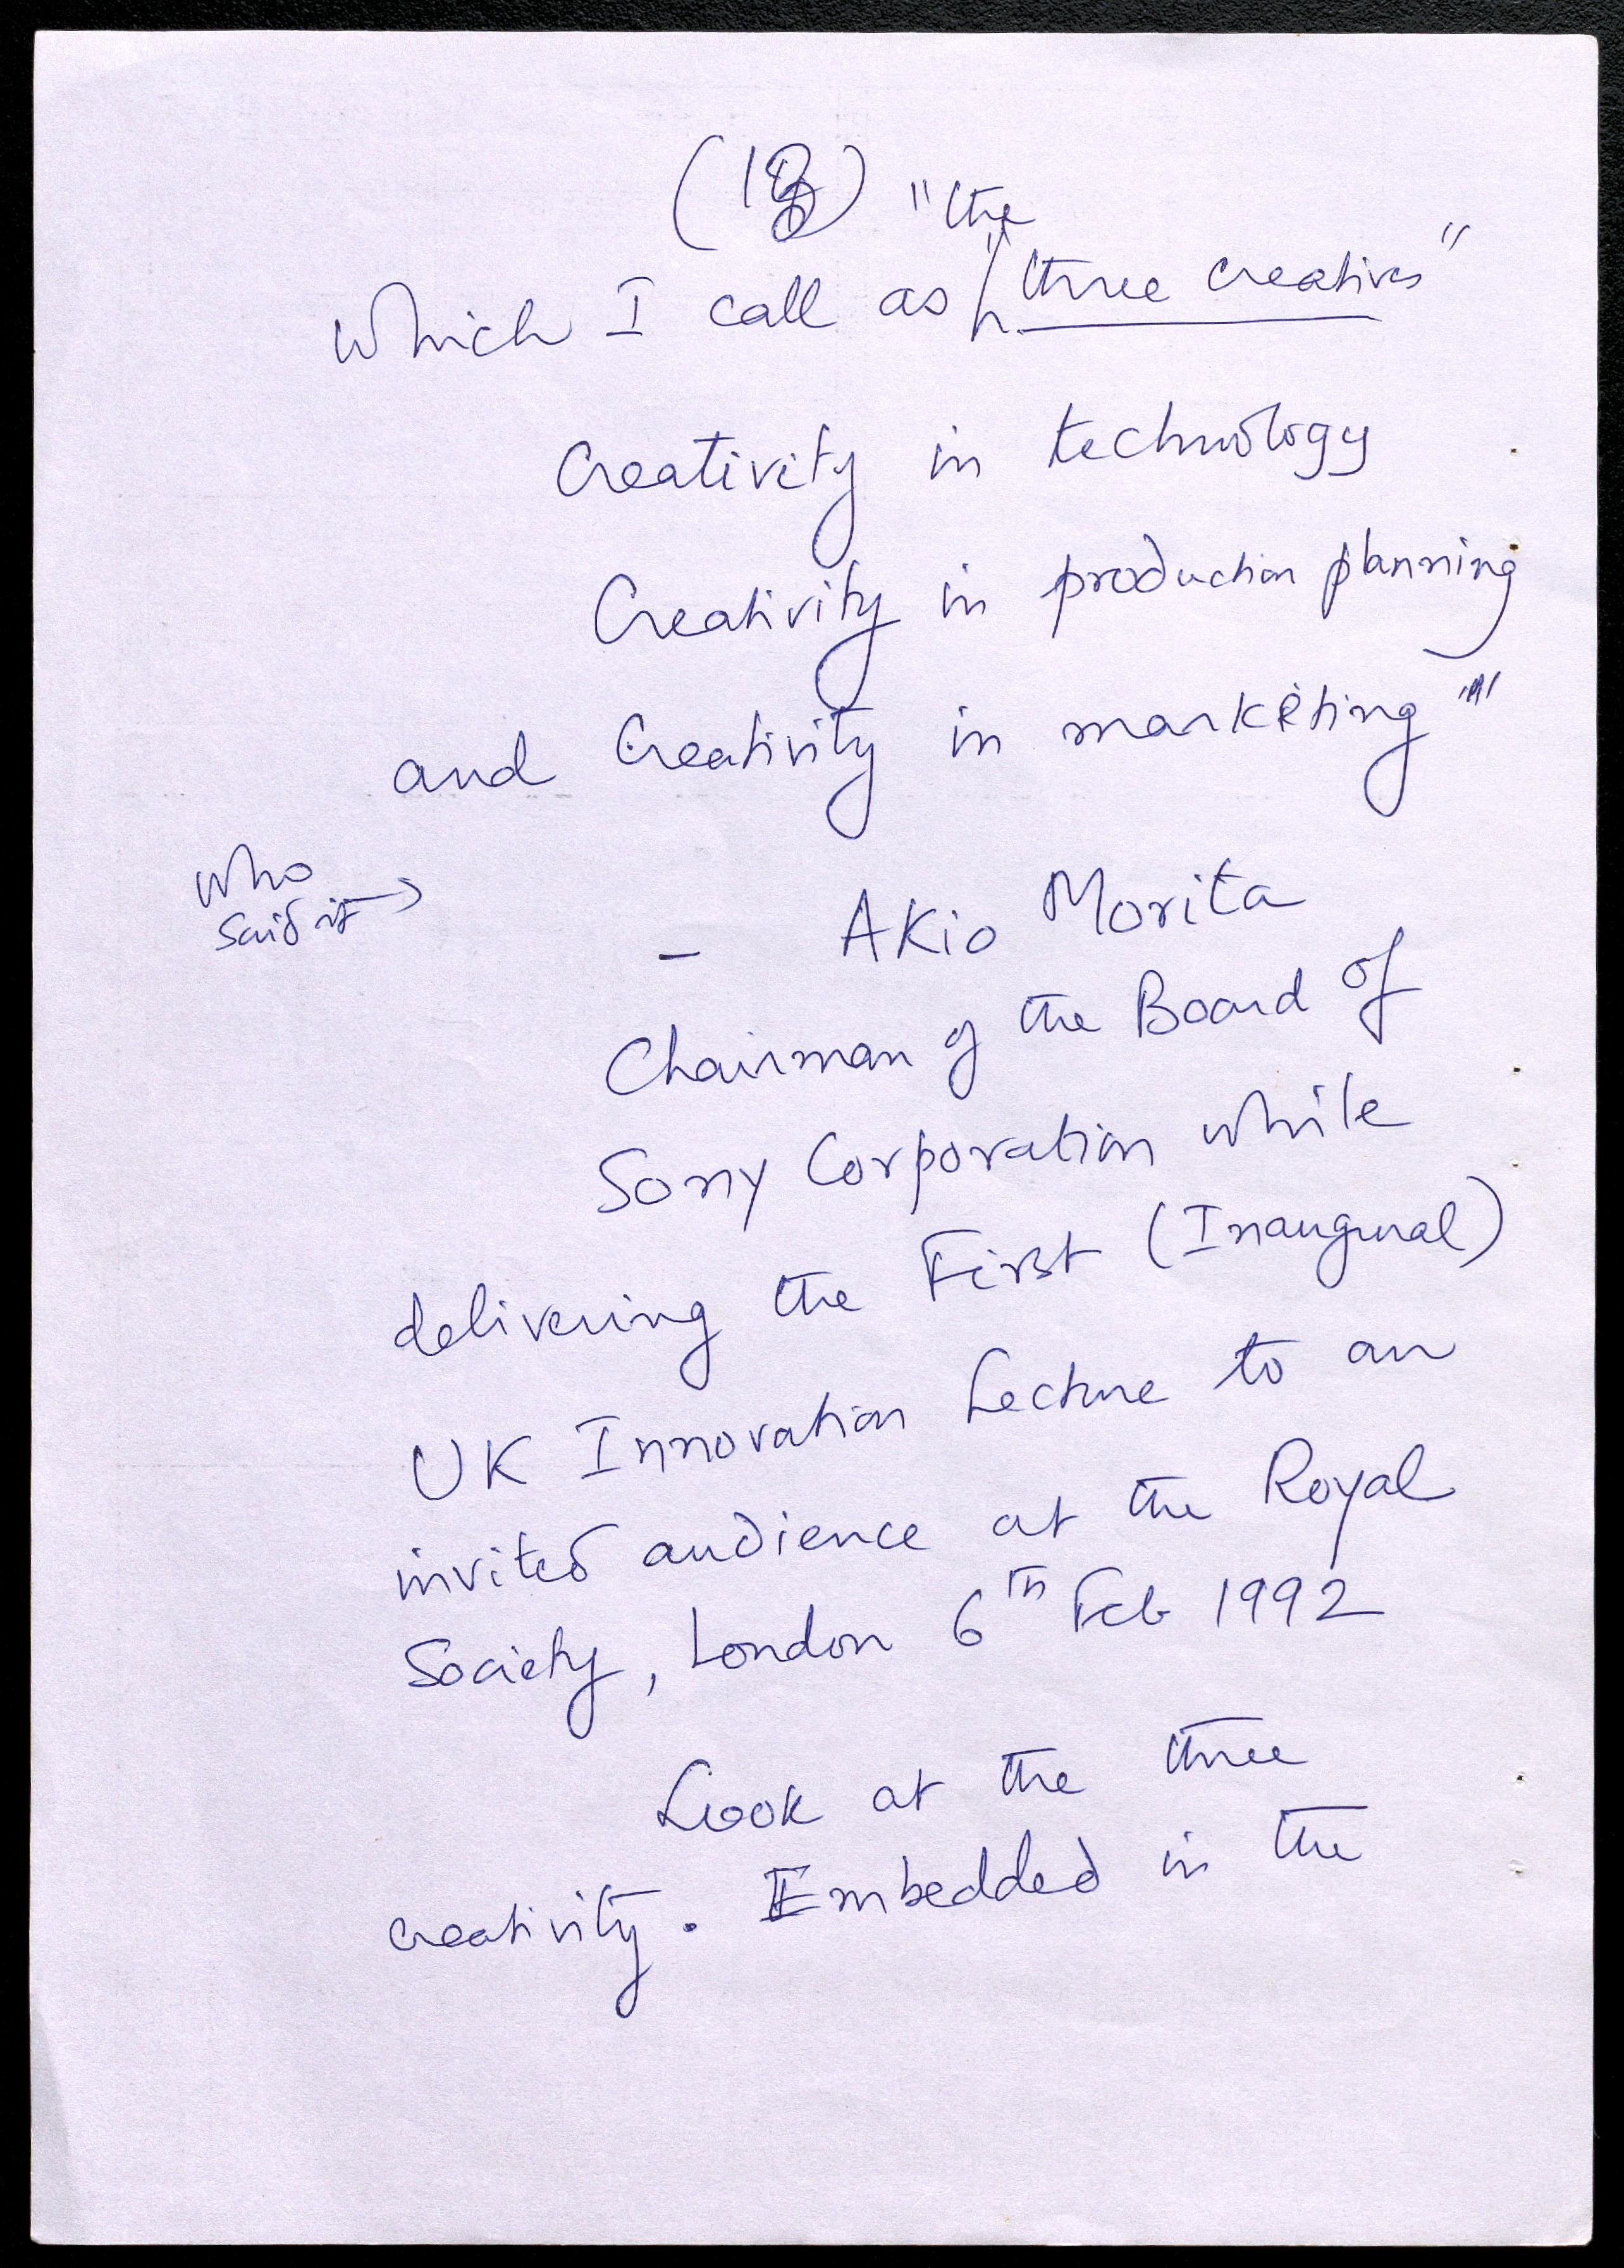 (18) "the
which I call as "three creatives"
Creativity in technology
Creativity in production planning
and Creativity in marketing"
who
said it →
- Akio Morita
Chairman of the Board of
Sony Corporation while
delivering the First (Inaugural)
UK Innovation Lecture to an
invited audience at the Royal
Society, London 6th Feb 1992
Look at the three
creativity. Embedded in the